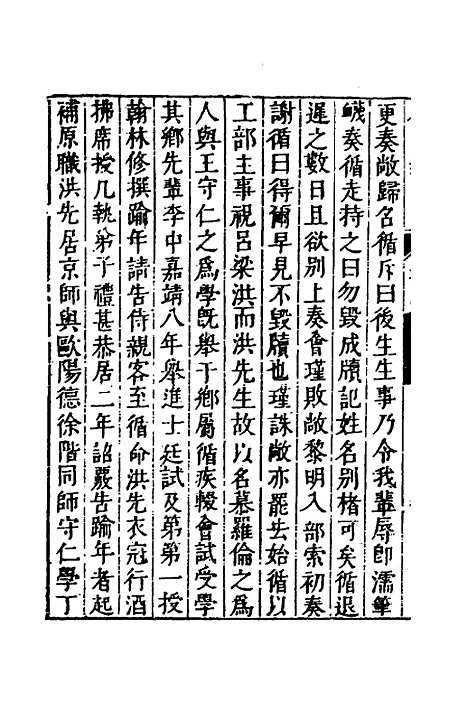 更奏敞歸名循斥曰後生生事乃令我輩辱卽濡筆
幾奏循走持之曰勿毀成牘記姓名別楮可矣循退
遲之數日且欲別上奏會瑾敗敞黎明入部索初奏
謝循曰得爾早見不毀牘也瑾誅敞亦罷去始循以
工部主事視呂梁洪而洪先生故以名慕羅倫之爲
人與王守仁之爲學旣舉于鄉屬循疾輟會試受學
其鄉先輩李中嘉靖八年舉進士廷試及第第一授
翰林修撰踰年請告侍親客至循命洪先衣冠行酒
拂席授几執弟子禮甚恭居二年詔覈告踰年者起
補原職洪先居京師與歐陽德徐階同師守仁學丁